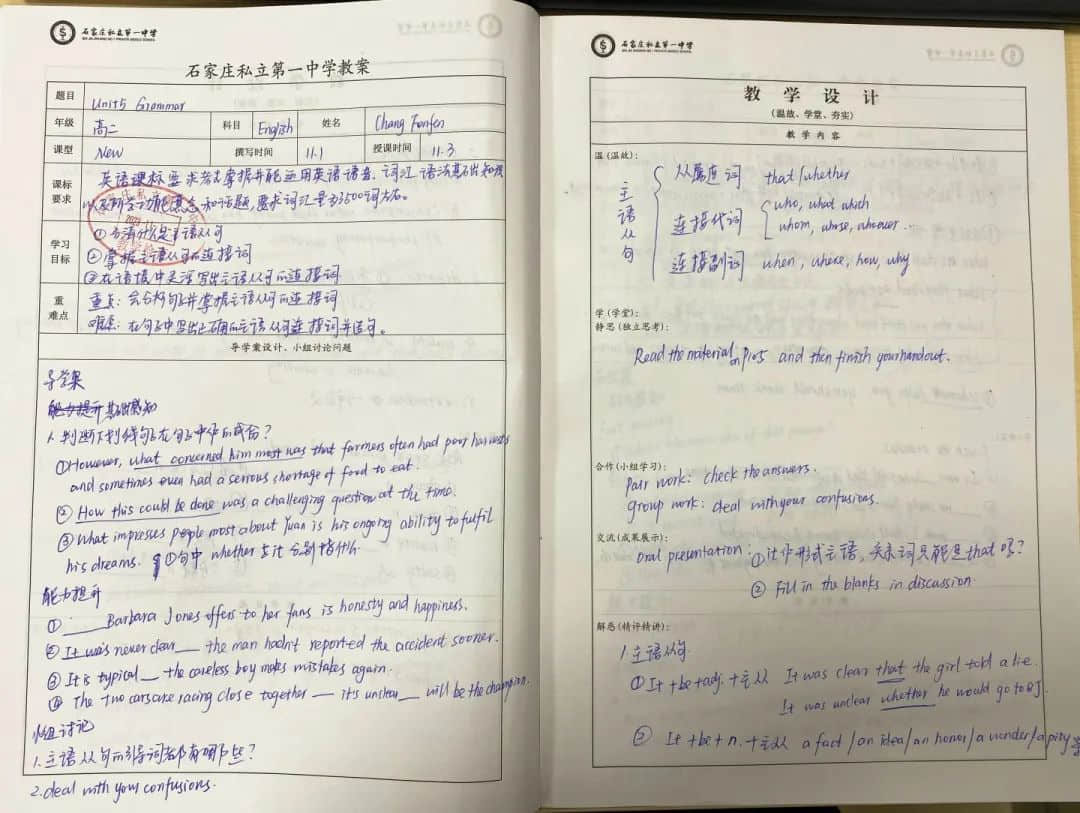 石家庄私立第一中学
石家庄私立第一中学教案
题目 Unit5 Grammar
年级 高二 科目 English 姓名 Chang Fenfen
课型 New 撰写时间 11.1 授课时间 11.3
课标要求 英语课标要求考生掌握并能运用英语语音、词汇、语法基础知识
以及所学功能意念和话题,要求词汇量为3500词左右。
学习目标 ①弄清什么是主语从句
②掌握主语从句的连接词
③在语境中灵活写出主语从句的连接词
重难点 重点:会分析句子并掌握主语从句的连接词
难点:在句子中写出正确的主语从句连接词并造句。
导学案设计、小组讨论问题
导学案
能力提升基础感知
1.判断下划线句子在句子中作的成份?
①However, what concerned him most was that farmers often had poor harvests
and sometimes even had a serious shortage of food to eat.
② How this could be done was a challenging question at the time.
③ What impresses people most about Yuan is his ongoing ability to fulfil
his dreams.
能力提升
① ___ Barbara Jones offers to her fans is honesty and happiness.
② It was never clear __ the man hadn't reported the accident sooner.
③ It is typical __ the careless boy makes mistakes again.
④ The two cars are racing close together — it's unclear __ will be the champion.
小组讨论
1.主语从句的引导词都有哪些?
2.deal with your confusions.
石家庄私立第一中学
教学设计
(温故、学堂、夯实)
教学内容
温(温故):
主语从句
从属连词 that/whether
连接代词 who, what which
whom, whose, whoever.
连接副词 when, where, how, why
学(学堂):
静思(独立思考):
Read the material on P105 and then finish your handout.
合作(小组学习):
Pair work: check the answers.
group work: deal with your confusions.
交流(成果展示):
Oral presentation: ①it作形式主语,关系词只能是that吗?
② Fill in the blanks in discussion
解惑(精评精讲):
1.主语从句
① It +be+adj. +主从 It was clear that the girl told a lie.
It was unclear whether he would go to BJ.
② It +be+n. +主从 a fact/an idea/an honor/a wonder/a pity等